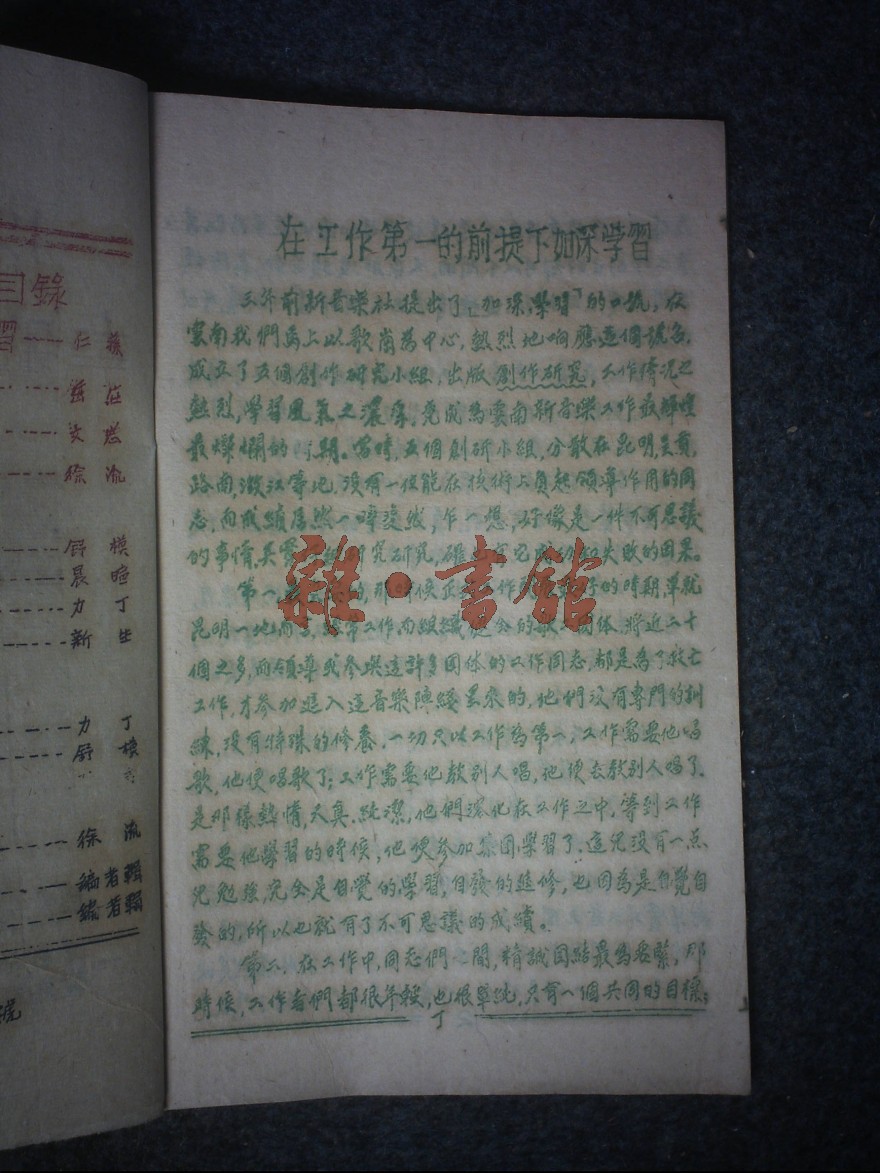 在工作第一的前提下加深學習
三年前新音樂社提出了「加深學習」的口號，在
雲南我們馬上以歌崗為中心，熱烈地响應這個號召，
成立了五個創作研究小組，出版創作研究，工作情况之
熱烈，學習風氣之濃厚，竟成為雲南新音樂工作最輝煌
最燦爛的時期。當時，五個創研小組，分散在昆明呈貢，
路南，澂江等地，没有一個能在技術上負起領導作用的同
志，而成績居然一時斐然，乍一想，好像是一件不可思議
的事情，其實研究研究，確也有它成功和失敗的因果。
第一，那時候作好的時期，單就
昆明一地而言，工作而組織的歌詠團体，將近二十
個之多，而領導或參與這許多团体的工作同志，都是為了救亡
工作，才參加進入這音樂陣綫裏來的，他們没有專門的訓
練，没有特殊的修養，一切只以工作為第一；工作需要他唱
歌，他便唱歌了；工作需要他教别人唱，他便去教别人唱了。
是那樣熱情，天真，純潔，他們深化在工作之中，等到工作
需要他學習的時候，他便參加集团學習了。這兒没有一点
兒勉強，完全是自覺的學習，自發的進修，也因為是自覺自
發的，所以也就有了不可思議的成績。
第二，在工作中，同志們之間，精誠团結最為要緊，那
時候，工作者們都很年輕，也很單純，只有一個共同的目標：
丁
目錄
習-----仁
文
徐流
舒模
晨暄
力丁
新生
力丁
舒模
徐流
編者輯
編者輯
號
雜·書館